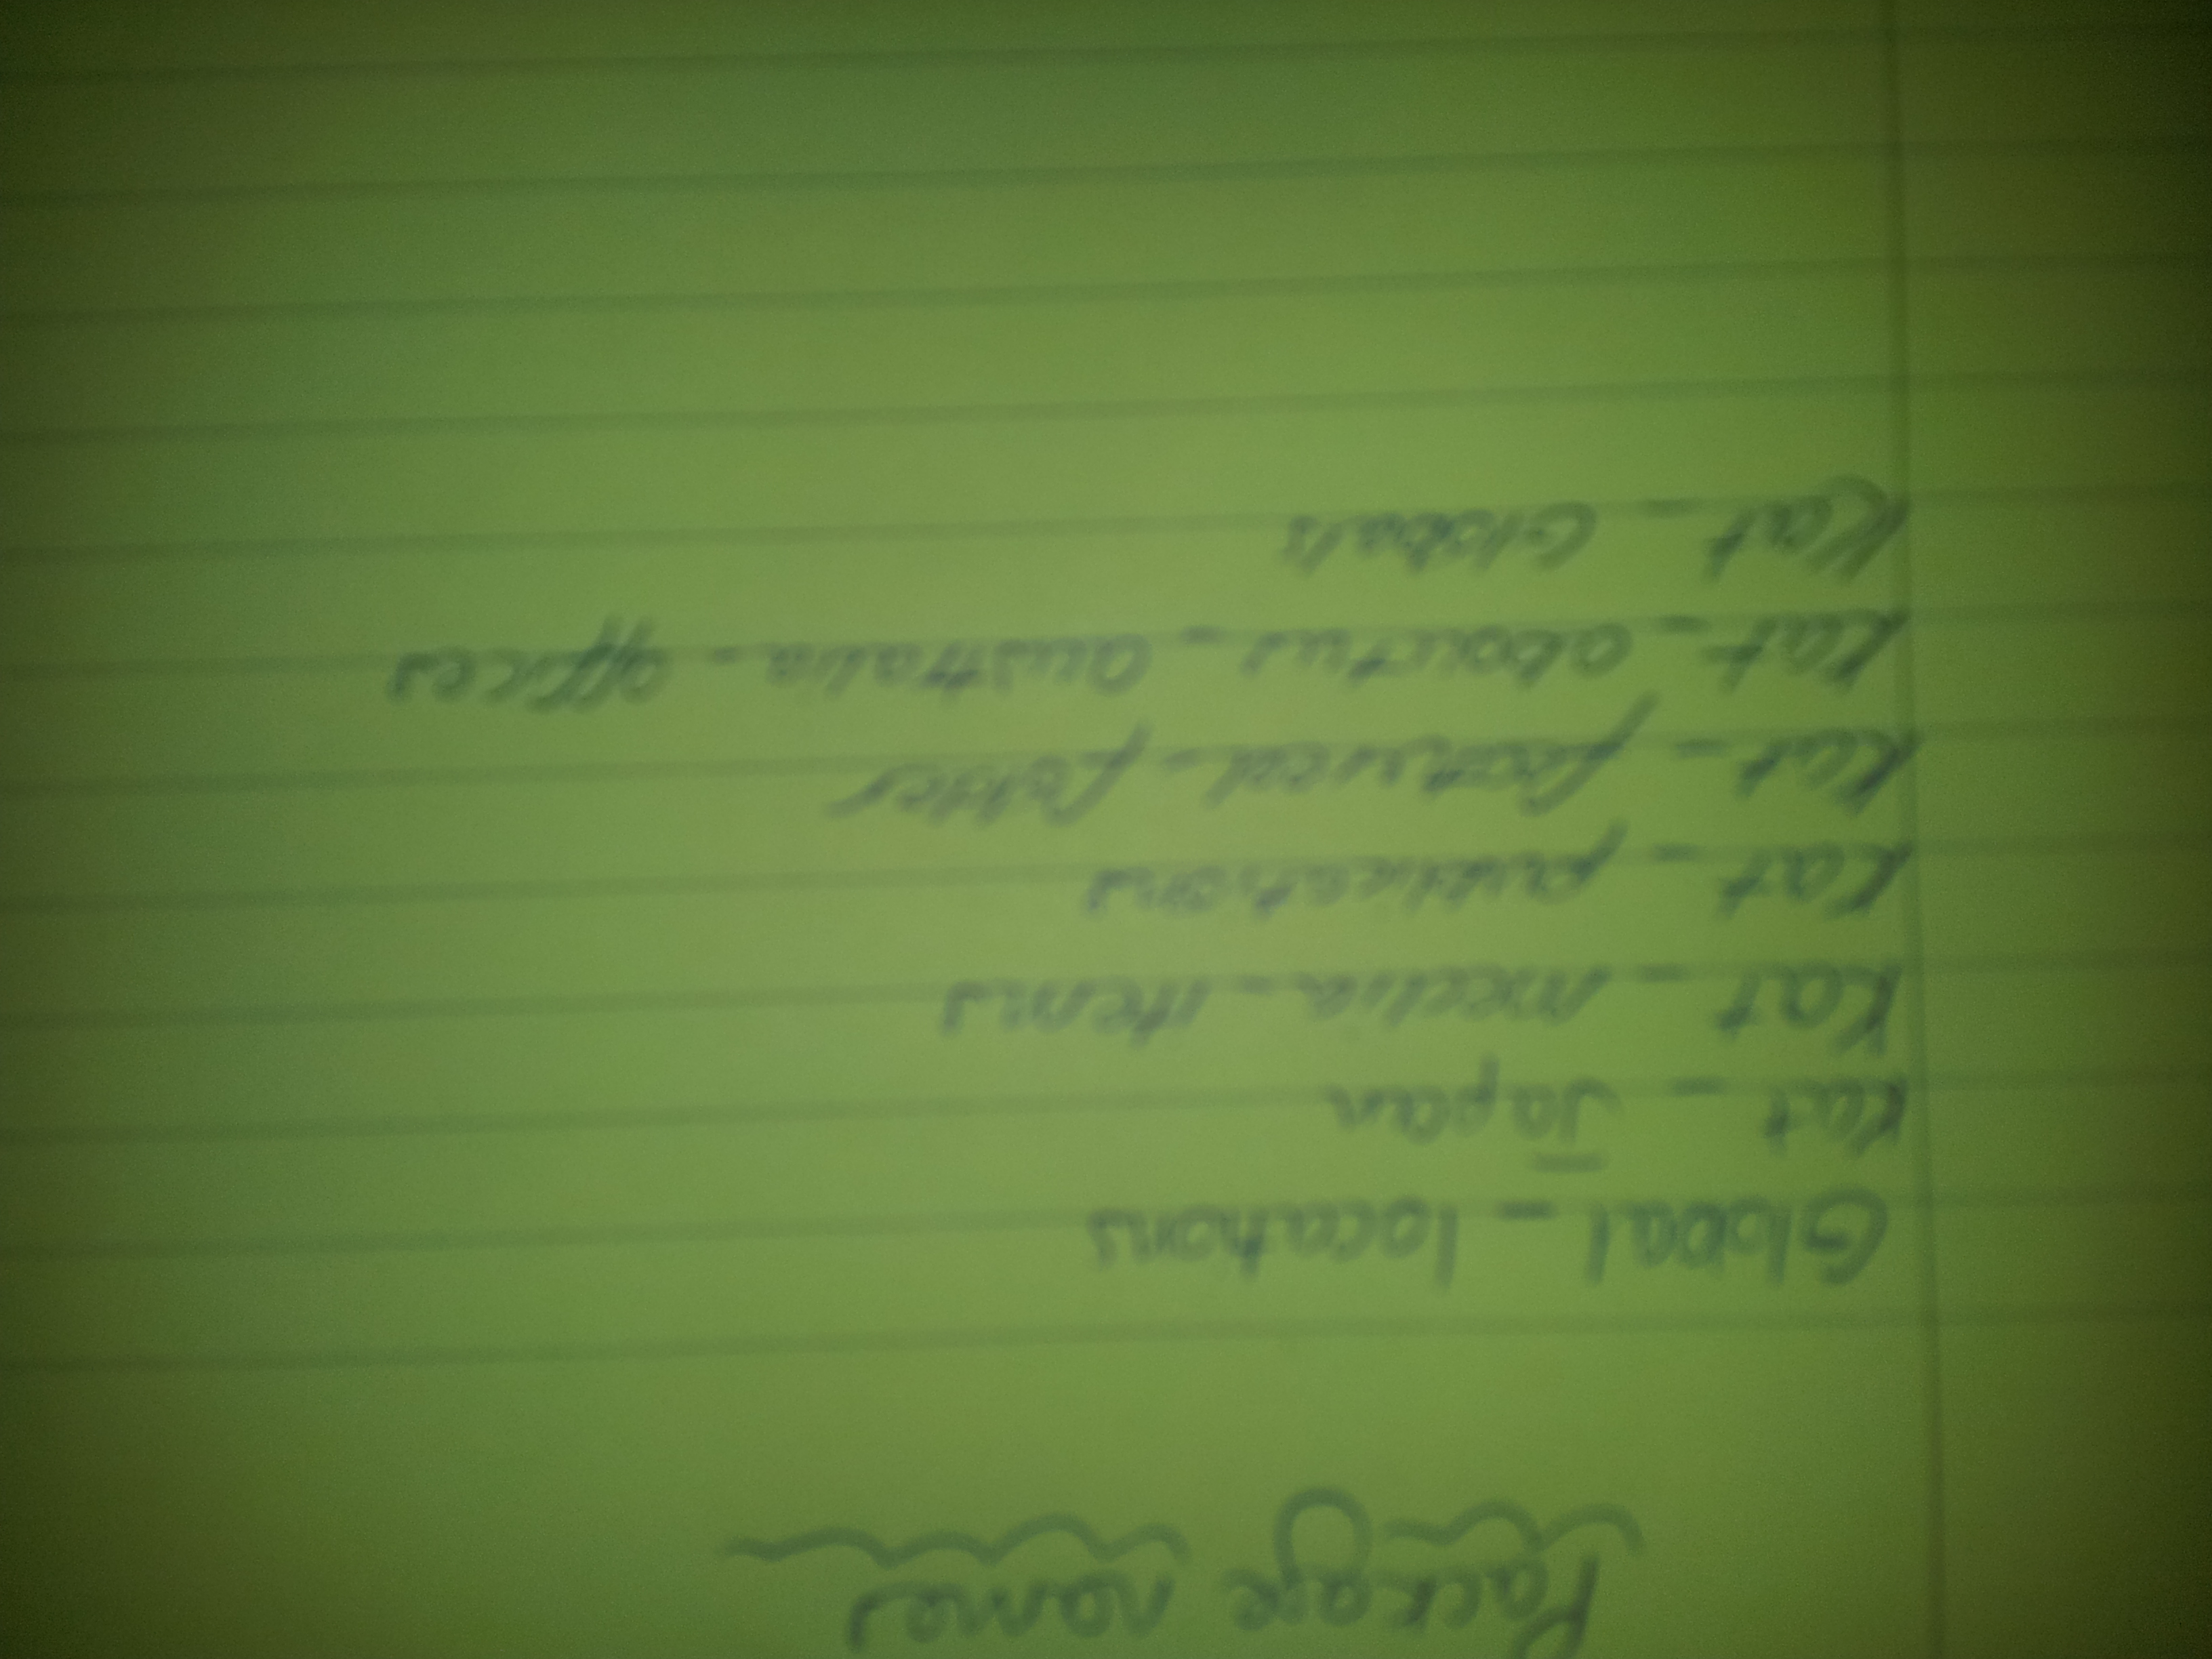 Package names
Global - locations
Kat - Japan
Kat - media - items
Kat - publications
Kat - featured - folder
Kat - aboutus - australia - offices
Kat - Globals